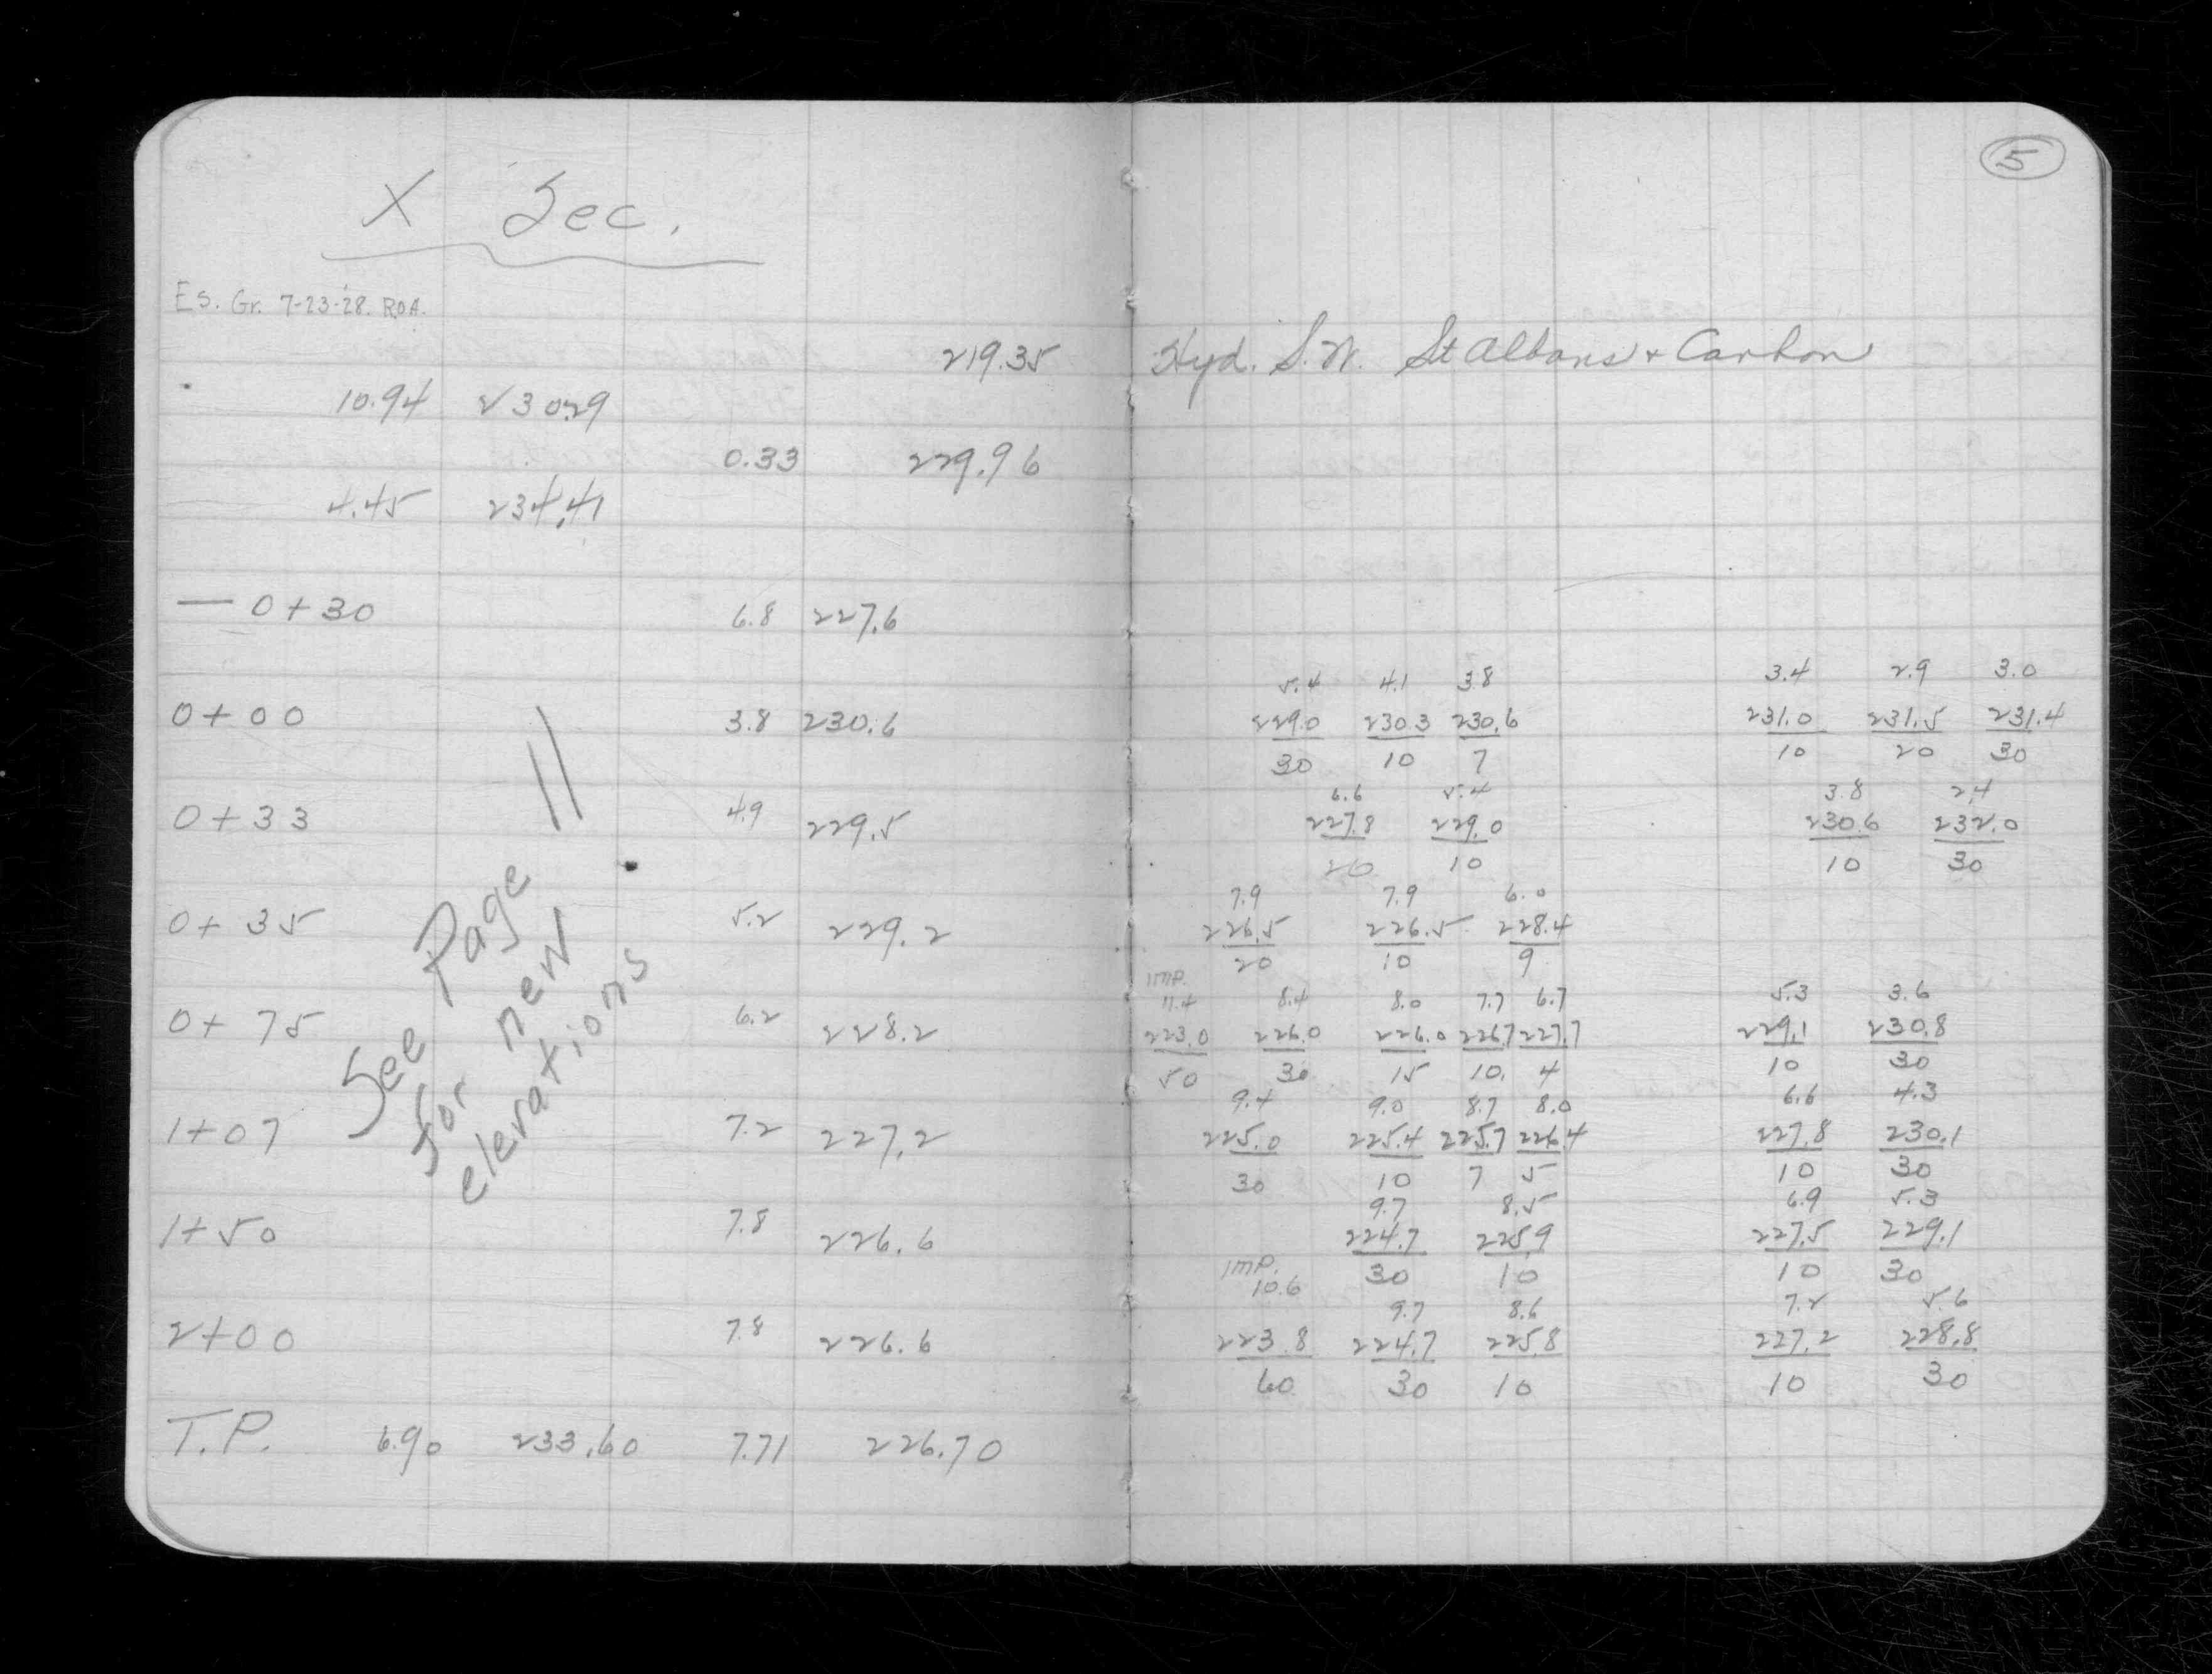 5
X Sec.
Es. Gr. 7-23-28. ROA.
219.35 Hyd. S.W. St Albans & Carbon
10.94 230.29
0.33 229.96
4.45 234.41
— 0+30 6.8 227.6
5.4 4.1 3.8 3.4 2.9 3.0
0+00 3.8 230.6 229.0 230.3 230.6 231.0 231.5 231.4
30 10 7 10 20 30
6.6 5.4 3.8 2.4
0+33 4.9 229.5 227.8 229.0 230.6 232.0
20 10 10 30
7.9 7.9 6.0
0+35 5.2 229.2 226.5 226.5 228.4
20 10 9
imp.
11.4 8.4 8.0 7.7 6.7 5.3 3.6
0+75 6.2 228.2 223.0 226.0 226.0 226.7 227.7 229.1 230.8
50 30 15 10. 4 10 30
9.4 9.0 8.7 8.0 6.6 4.3
1+07 7.2 227.2 225.0 225.4 225.7 226.4 227.8 230.1
30 10 7 5 10 30
9.7 8.5 6.9 5.3
1+50 7.8 226.6 224.7 225.9 227.5 229.1
30 10 10 30
imp.
10.6 9.7 8.6 7.2 5.6
2+00 7.8 226.6 223.8 224.7 225.8 227.2 228.8
60 30 10 10 30
T.P. 6.90 233.60 7.71 226.70
See Page 11
for new
elevations